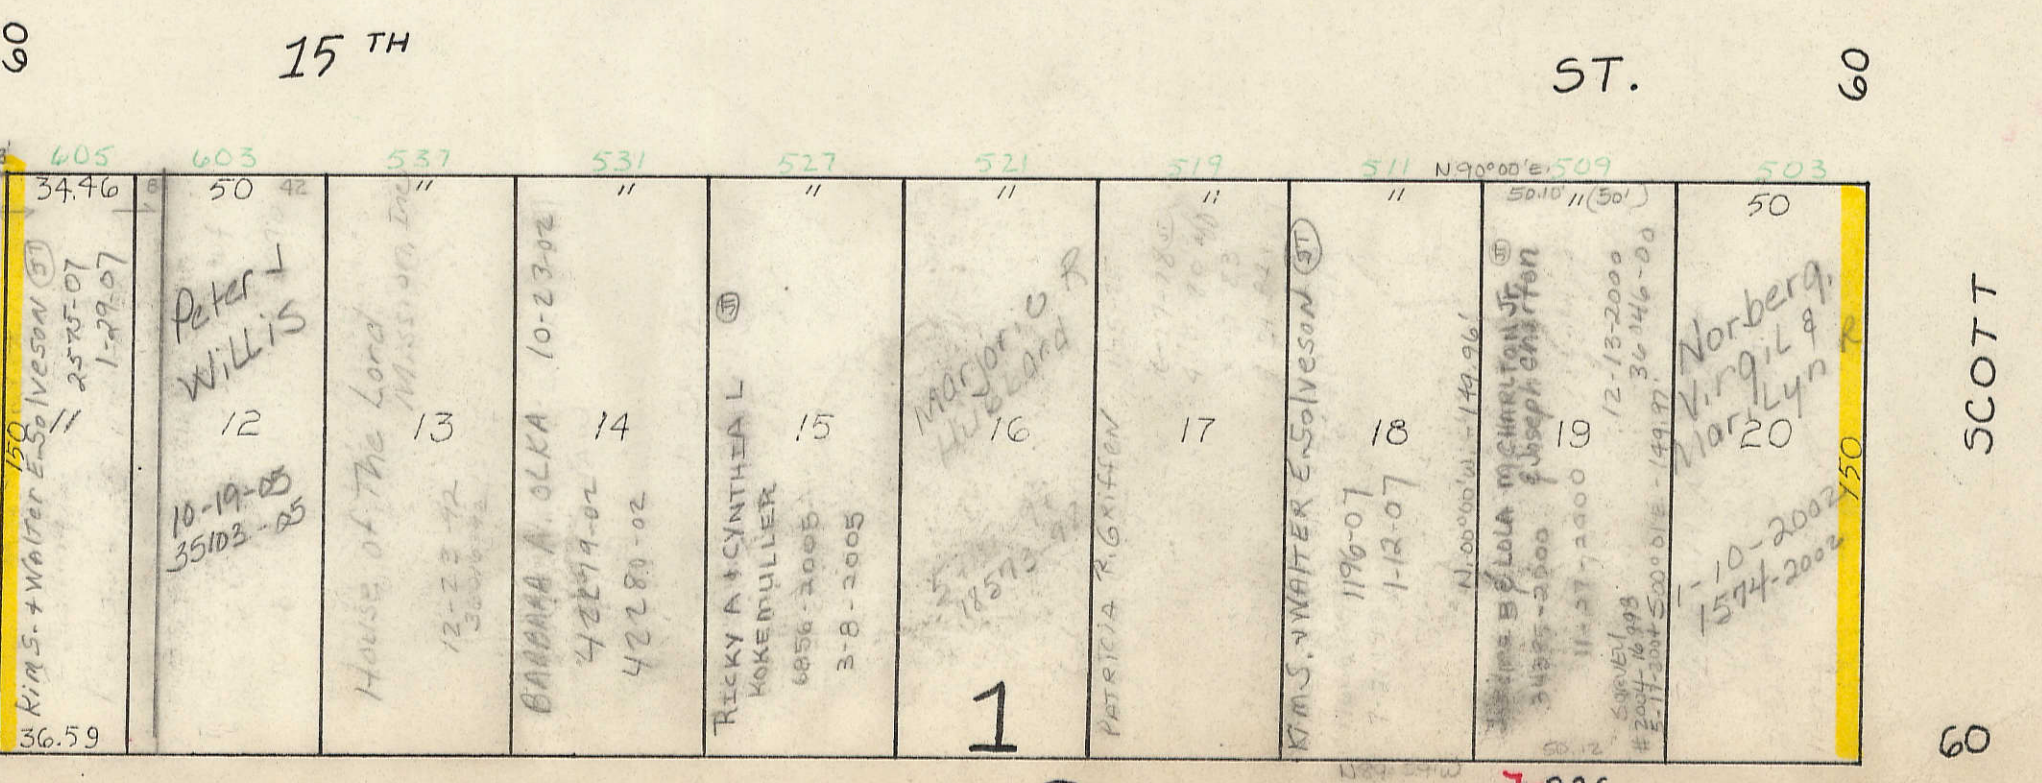 60
15 TH
ST.
60
605
603
537
531
527
521
519
511
N90°00'E
509
503
34.46
8
50
42
"
"
"
"
"
"
50.10'
"(50')
50
Kim S. + Walter E Solveson JT
" 2575-07
1-29-07
150
36.59
Peter L
Willis
12
10-19-05
35103-05
House of The Lord
Mission, Inc
13
12-23-92
BARBARA A. OLKA 10-23-02
14
42279-02
42280-02
RICKY A + CYNTHIA L JT
KOKEMULLER
15
6856-2005
3-8-2005
Marjorie R
Hubbard
16
1
PATRICIA R. Griffen
17
Kim S. + WAlTER E. Solveson JT
18
1196-07
1-12-07
N.00°00'W.-149.96'
LOLA McCHARLTON Jr. JT
19
34285-2000
11-27-2000
12-13-2000
36046-00
SURVEY
#2004-16993
5-17-2004
149.97'
50.12
Norberg,
Virgil &
Marilyn
20
1-10-2002
1574-2002
150
SCOTT
60